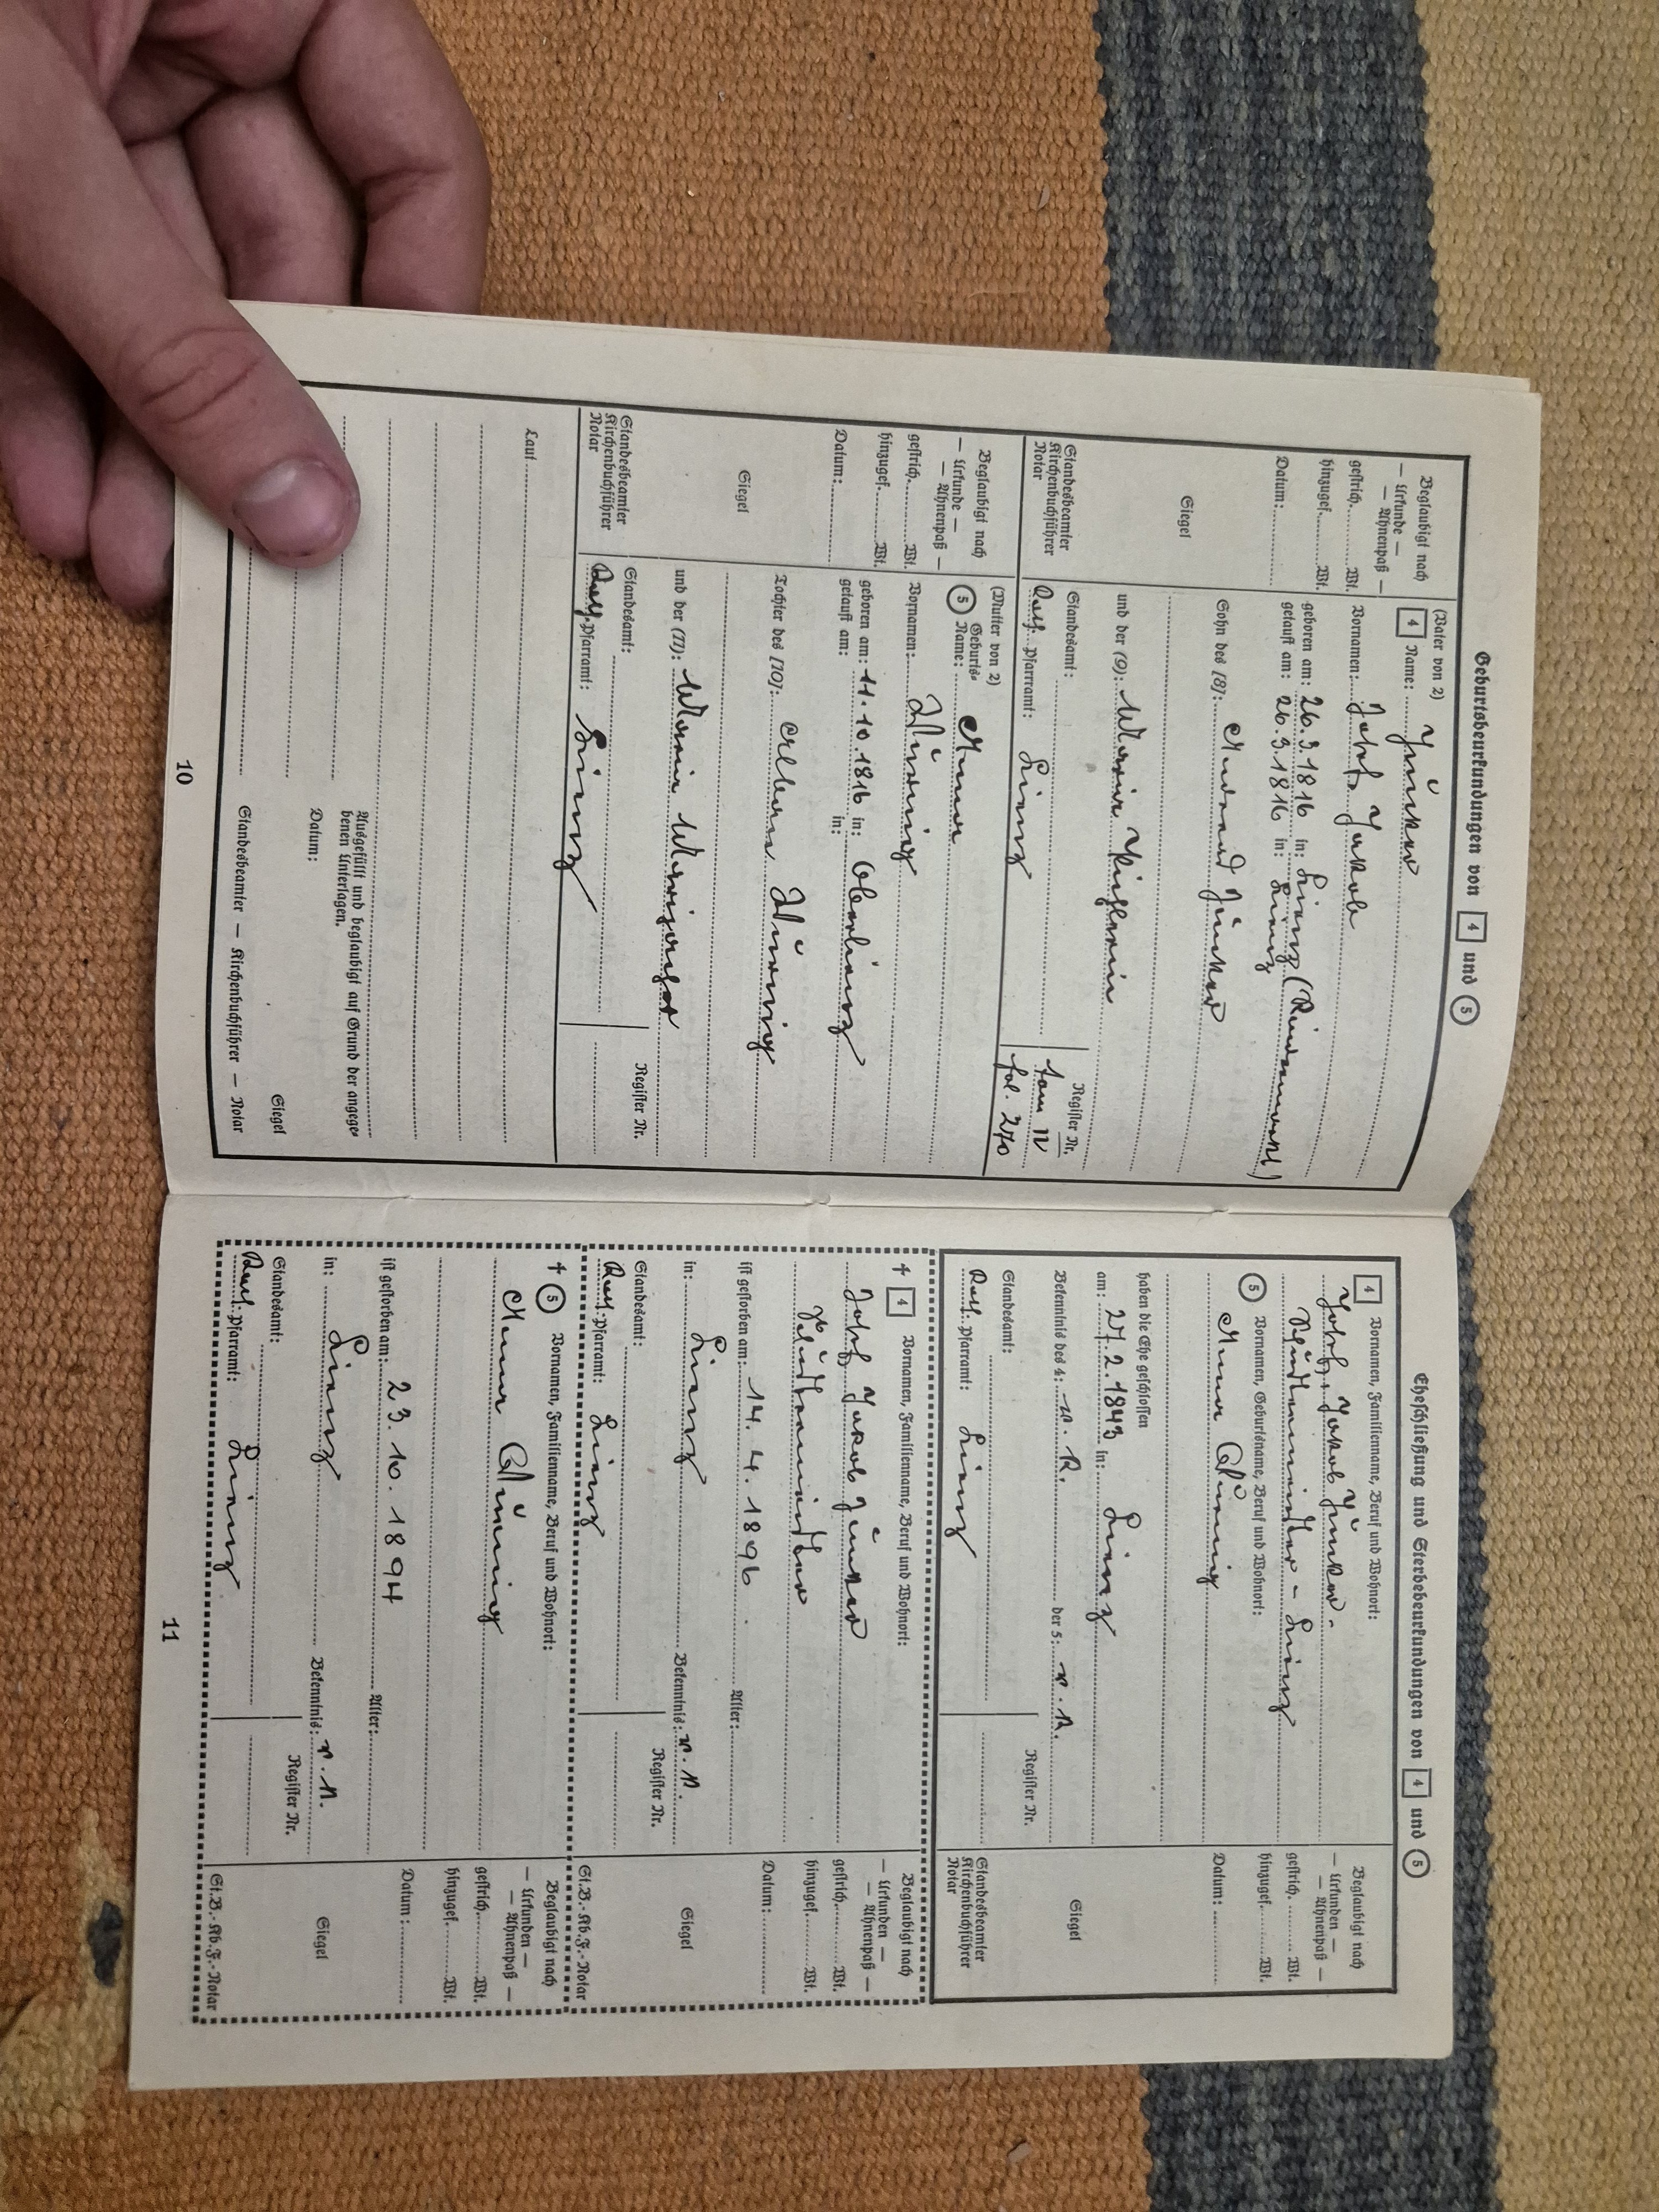 Geburtsbeurkundungen von 4 und 5
Beglaubigt nach
— Urkunde —
— Ahnenpaß —
gestrich. Wt.
hinzugef. Wt.
Datum:
Siegel
Standesbeamter
Kirchenbuchführer
Notar
(Vater von 2)
4 Name:
Vornamen: Jakob
geboren am: 26.3.1816 in: Lienz
getauft am: 26.3.1816 in: Lienz
Sohn des [8]:
und der (9): Maria
Standesamt:
Kath. Pfarramt: Lienz
Register Nr.
tom IV
fol. 270
Beglaubigt nach
— Urkunde —
— Ahnenpaß —
gestrich. Wt.
hinzugef. Wt.
Datum:
Siegel
Standesbeamter
Kirchenbuchführer
Notar
(Mutter von 2)
5 Geburts-
Name:
Vornamen:
geboren am: 11.10.1816 in: Oberlienz
getauft am: in:
Tochter des [10]:
und der (11): Maria
Standesamt:
Kath. Pfarramt: Lienz
Register Nr.
Laut
Ausgefüllt und beglaubigt auf Grund der angege-
benen Unterlagen.
Datum:
Siegel
Standesbeamter — Kirchenbuchführer — Notar
10
Eheschließung und Sterbebeurkundungen von 4 und 5
4 Vornamen, Familienname, Beruf und Wohnort:
Jakob
Lienz
5 Vornamen, Geburtsname, Beruf und Wohnort:
haben die Ehe geschlossen
am: 27.2.1843 in: Lienz
Bekenntnis des 4: r. k. der 5: r. k.
Standesamt:
Kath. Pfarramt: Lienz
Register Nr.
Beglaubigt nach
— Urkunden —
— Ahnenpaß —
gestrich. Wt.
hinzugef. Wt.
Datum:
Siegel
Standesbeamter
Kirchenbuchführer
Notar
4 Vornamen, Familienname, Beruf und Wohnort:
Jakob
ist gestorben am: 14. 4. 1896 Alter:
in: Lienz Bekenntnis: r. k.
Standesamt:
Kath. Pfarramt: Lienz
Register Nr.
Beglaubigt nach
— Urkunden —
— Ahnenpaß —
gestrich. Wt.
hinzugef. Wt.
Datum:
Siegel
St.B.- Kb.F.- Notar
5 Vornamen, Familienname, Beruf und Wohnort:
ist gestorben am: 23. 10. 1894 Alter:
in: Lienz Bekenntnis: r. k.
Standesamt:
Kath. Pfarramt: Lienz
Register Nr.
Beglaubigt nach
— Urkunden —
— Ahnenpaß —
gestrich. Wt.
hinzugef. Wt.
Datum:
Siegel
St.B.- Kb.F.- Notar
11